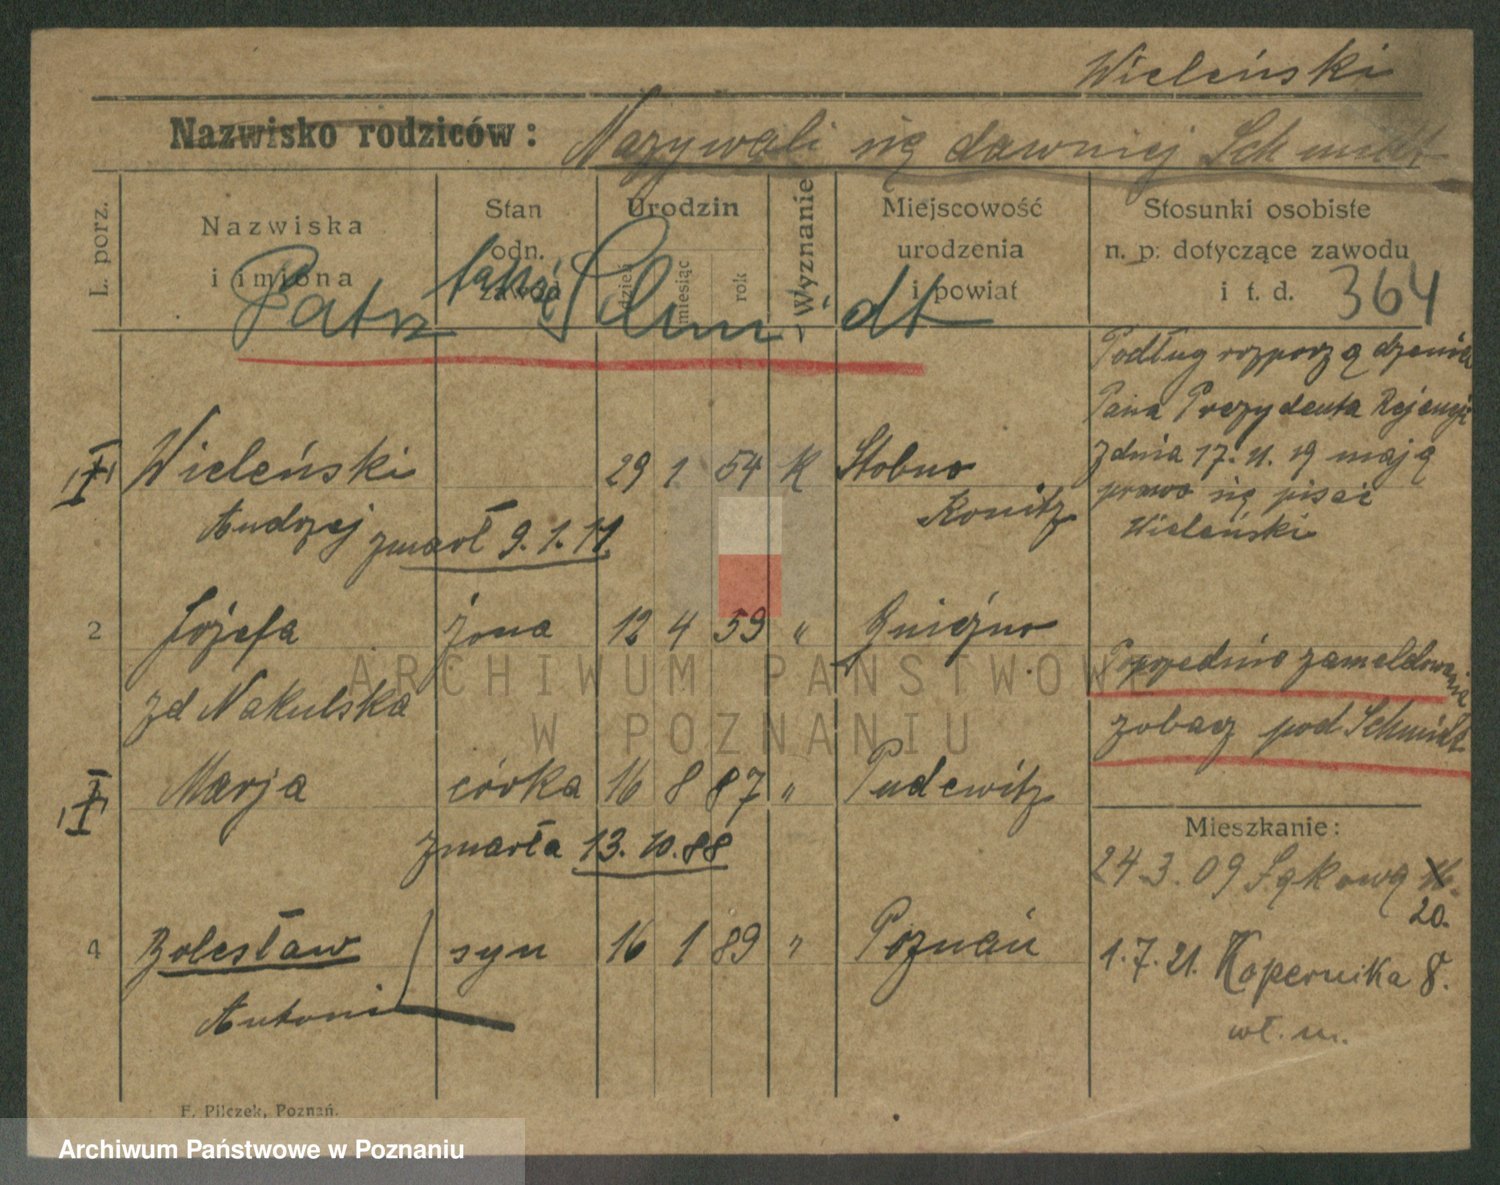 Wieleński
Nazwisko rodziców: Nazywali się dawniej Schmidt
L. porz.
Nazwiska
i imiona
Stan
odn.
zawód
Urodzin
dzień
miesiąc
rok
Wyznanie
Miejscowość
urodzenia
i powiat
Stosunki osobiste
n. p. dotyczące zawodu
i t. d. 364
Patrz także Schmidt
Podług rozporządzenia
Pana Prezydenta Rejencji
z dnia 17. 11. 19 mają
prawo się pisać
Wieleński
I Wieleński 29 1 54 K Stobno
Andrzej zmarł 9.1.11. Konitz
2 Józefa żona 12 4 59 " Gniezno
zd Nakulska
Poprzednio zameldowania
zobacz pod Schmidt
Marja córka 16 8 87 " Pudewitz
zmarła 13.10.88
Mieszkanie:
24.3.09 Łąkowa
20.
4 Bolesław syn 16 1 89 " Poznań
Antoni
1.7.21. Kopernika 8.
wł. m.
F. Pilczek, Poznań.
ARCHIWUM PAŃSTWOWE
W POZNANIU
Archiwum Państwowe w Poznaniu